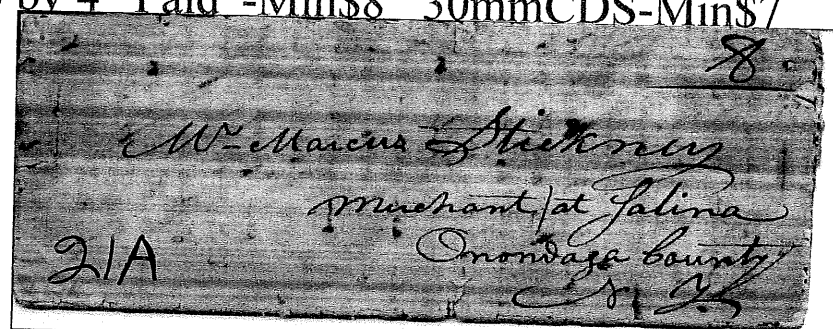 by 4 "Paid"-Min$8 30mmCDS-Min$7
8
Mr Marcus Stickney
Merchant at Salina
Onondaga County
N. Y.
21A